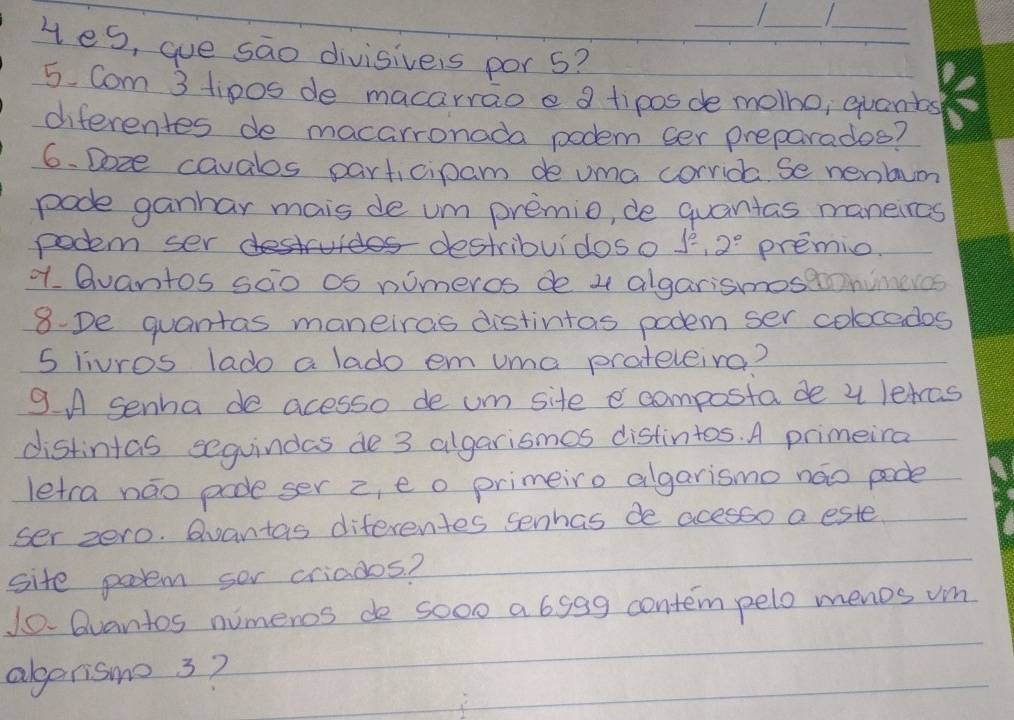 4 e 5, que são divisíveis por 5?
5- Com 3 tipos de macarrão e 2 tipos de molho, quantos
diferentes de macarronada podem ser preparados?
6- Doze cavalos participam de uma corrida. Se nenhum
pode ganhar mais de um prêmio, de quantas maneiras
podem ser destruidos destribuídos o 1º, 2º prêmio.
7- Quantos são os números de 4 algarismos números
8- De quantas maneiras distintas podem ser colocados
5 livros lado a lado em uma prateleira?
9- A senha de acesso de um site é composta de 4 letras
distintas seguindas de 3 algarismos distintos. A primeira
letra não pode ser z, e o primeiro algarismo não pode
ser zero. Quantas diferentes senhas de acesso a este
site podem ser criados?
10- Quantos números de 5000 a 6999 contêm pelo menos um
algarismo 3?